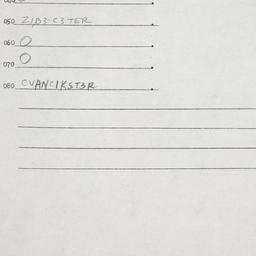 040
050 Z1B3-C3TER
060 O
070 O
080 CVANCIKST3R